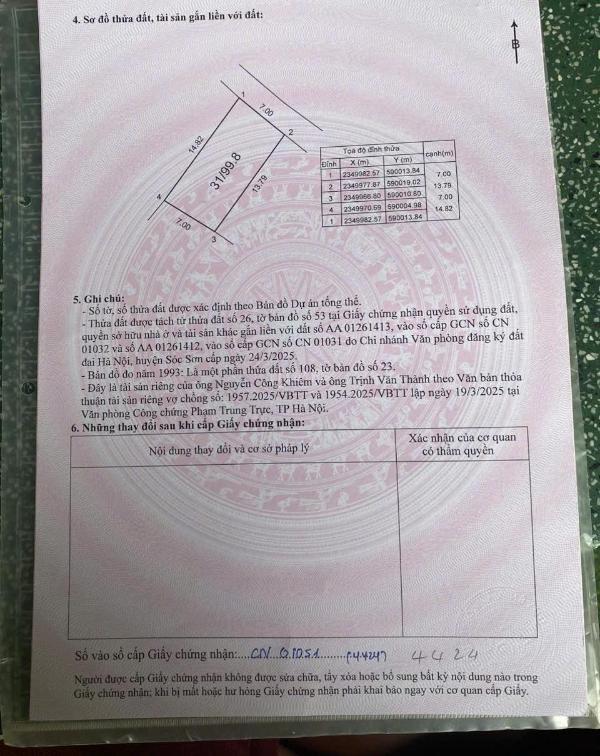 4. Sơ đồ thửa đất, tài sản gắn liền với đất:
B
1
7.00
2
14.82
31/99.8
13.79
4
7.00
3
Toạ độ đỉnh thửa cạnh(m)
Đỉnh X (m) Y (m)
1 2349982.57 590013.84
7.00
2 2349977.87 590019.02
13.79
3 2349966.80 590010.80
7.00
4 2349970.59 590004.98
14.82
1 2349982.57 590013.84
5. Ghi chú:
- Số tờ, số thửa đất được xác định theo Bản đồ Dự án tổng thể.
- Thửa đất được tách từ thửa đất số 26, tờ bản đồ số 53 tại Giấy chứng nhận quyền sử dụng đất,
quyền sở hữu nhà ở và tài sản khác gắn liền với đất số AA 01261413, vào số cấp GCN số CN
01032 và số AA 01261412, vào số cấp GCN số CN 01031 do Chi nhánh Văn phòng đăng ký đất
đai Hà Nội, huyện Sóc Sơn cấp ngày 24/3/2025.
- Bản đồ đo năm 1993: Là một phần thửa đất số 108, tờ bản đồ số 23.
- Đây là tài sản riêng của ông Nguyễn Công Khiêm và ông Trịnh Văn Thành theo Văn bản thỏa
thuận tài sản riêng vợ chồng số: 1957.2025/VBTT và 1954.2025/VBTT lập ngày 19/3/2025 tại
Văn phòng Công chứng Phạm Trung Trực, TP Hà Nội.
6. Những thay đổi sau khi cấp Giấy chứng nhận:
Nội dung thay đổi và cơ sở pháp lý
Xác nhận của cơ quan
có thẩm quyền
Số vào sổ cấp Giấy chứng nhận:....CN...01051......... 4424
Người được cấp Giấy chứng nhận không được sửa chữa, tẩy xóa hoặc bổ sung bất kỳ nội dung nào trong
Giấy chứng nhận; khi bị mất hoặc hư hỏng Giấy chứng nhận phải khai báo ngay với cơ quan cấp Giấy.